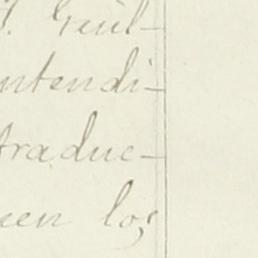 Guil-
ntendi-
traduc-
en los